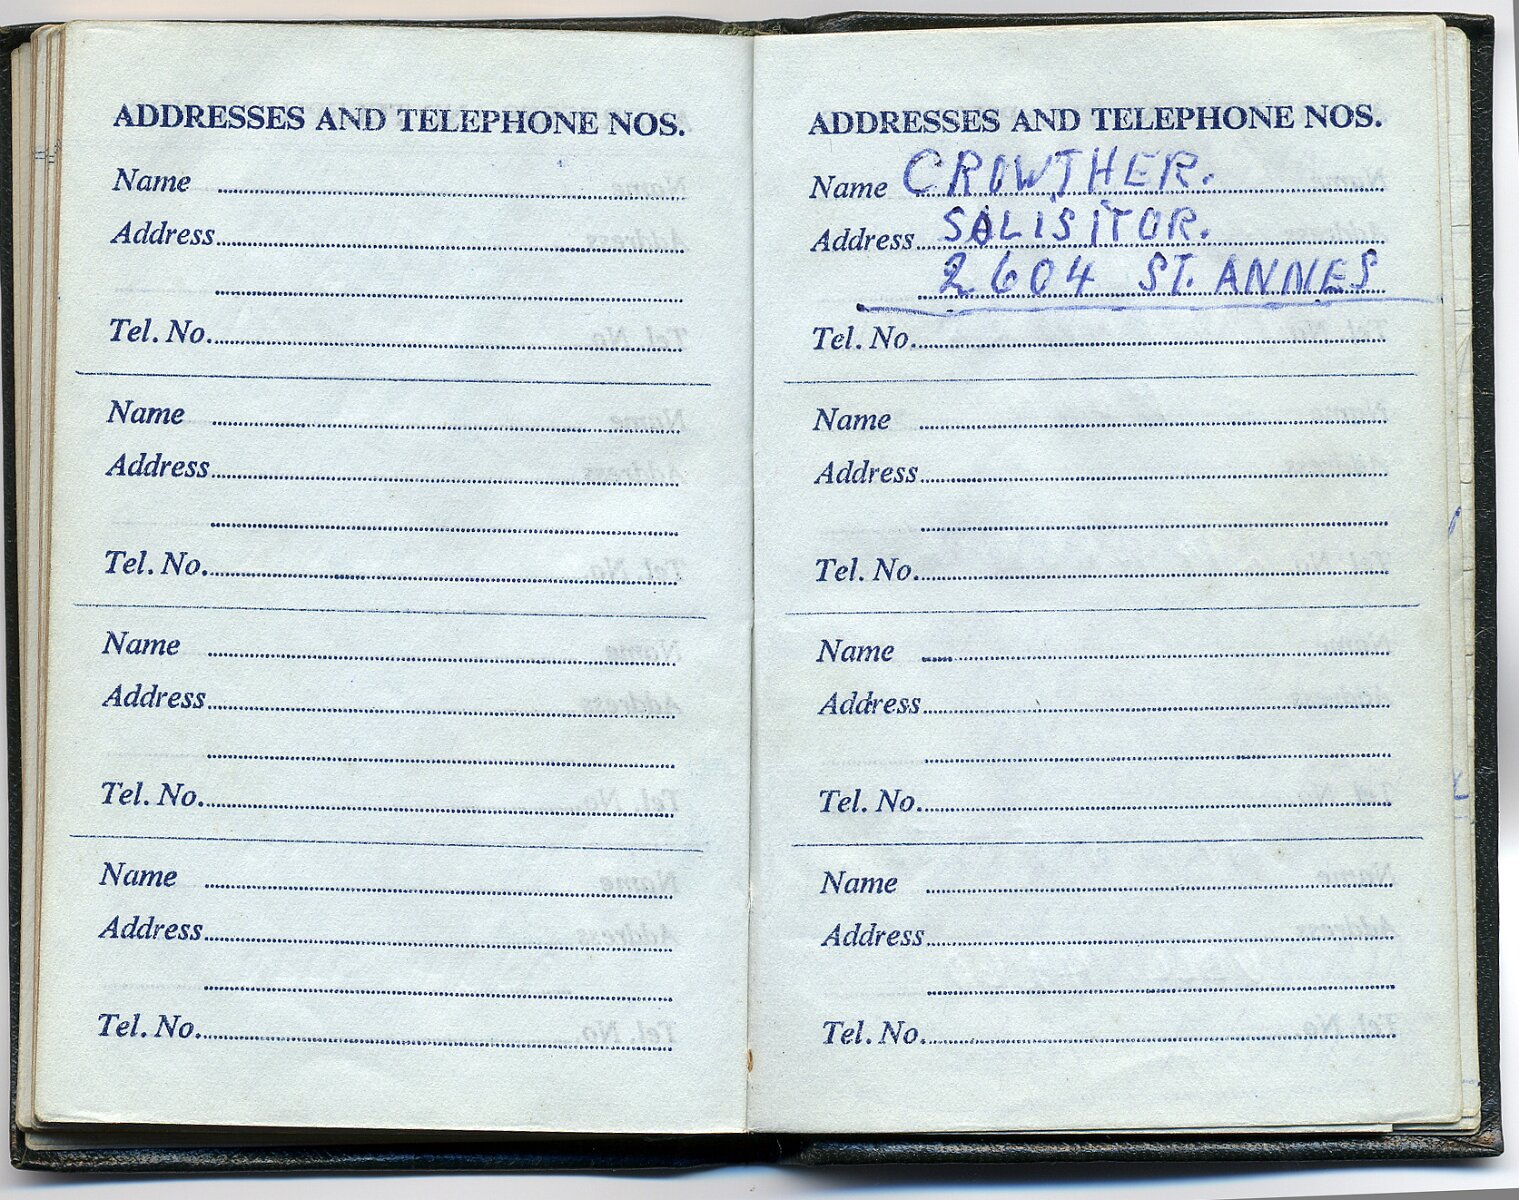 ADDRESSES AND TELEPHONE NOS.
Name
Address
Tel. No.
Name
Address
Tel. No.
Name
Address
Tel. No.
Name
Address
Tel. No.
ADDRESSES AND TELEPHONE NOS.
Name CROWTHER.
Address SOLISITOR.
2604 ST. ANNES
Tel. No.
Name
Address
Tel. No.
Name
Address
Tel. No.
Name
Address
Tel. No.